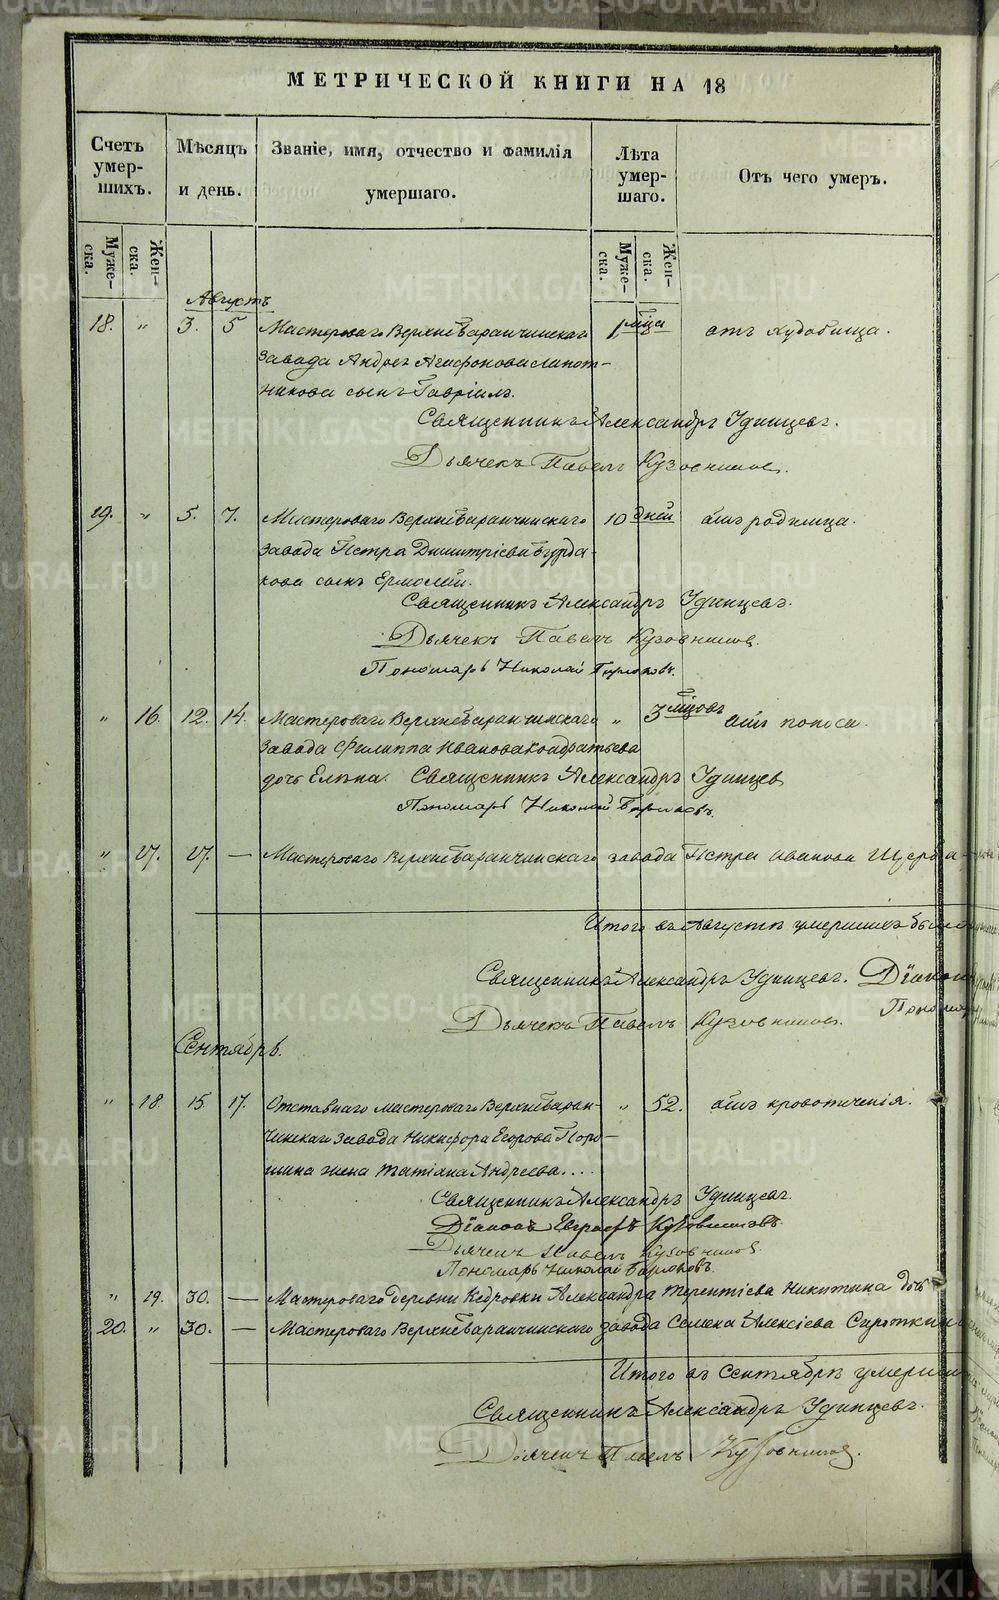 МЕТРИЧЕСКОЙ КНИГИ НА 18
Счетъ умер- шихъ.
Мѣсяцъ и день.
Званіе, имя, отчество и фамилія умершаго.
Лѣта умер- шаго.
Отъ чего умеръ.
Муже- ска.
Жен- ска.
Муже- ска.
Жен- ска.
Августъ
18. " 3. 5 Мастероваго Верхнебаранчинскаго 1 мца отъ худобища.
завода Андрея Агафонова Лапот-
никова сынъ Гавріилъ.
Священникъ Александръ Удинцевъ.
Дьячекъ Павелъ Кузовниковъ.
19. " 5. 7. Мастероваго Верхнебаранчинскаго 10 дней отъ родимца.
завода Петра Димитріева Бурда-
кова сынъ Ермолай.
Священникъ Александръ Удинцевъ.
Дьячекъ Павелъ Кузовниковъ.
Пономарь Николай
" 16. 12. 14. Мастероваго Верхнебаранчинскаго " 3 мцовъ отъ поноса.
завода Филиппа Иванова Кондратьева
дочь Елена. Священникъ Александръ Удинцев
Пономарь Николай
" 27. — Мастероваго Верхнебаранчинскаго завода Петра Иванова Щерба-
Итого въ Августѣ умершихъ было
Священникъ Александръ Удинцевъ. Діакон
Пономарь
Дьячекъ Павелъ Кузовниковъ.
Сентябрь.
" 18. 15. 17. Отставнаго мастероваго Верхнебаран- " 52. отъ кровотеченія.
чинскаго завода Никифора Егорова Поро-
шина жена Татіана Андреева....
Священникъ Александръ Удинцевъ.
Діаконъ Евграфъ Кузовниковъ.
Дьячекъ Павелъ Кузовниковъ.
Пономарь Николай
" 19. 30. — Мастероваго деревни Кедровки Александра Терентіева Никитина дочь
20. " 30. — Мастероваго Верхнебаранчинскаго завода Семена Алексіева Сироткин
Итого въ Сентябрѣ умерши
Священникъ Александръ Удинцевъ.
Дьячекъ Павелъ Кузовниковъ.
METRIKI.GASO-URAL.RU